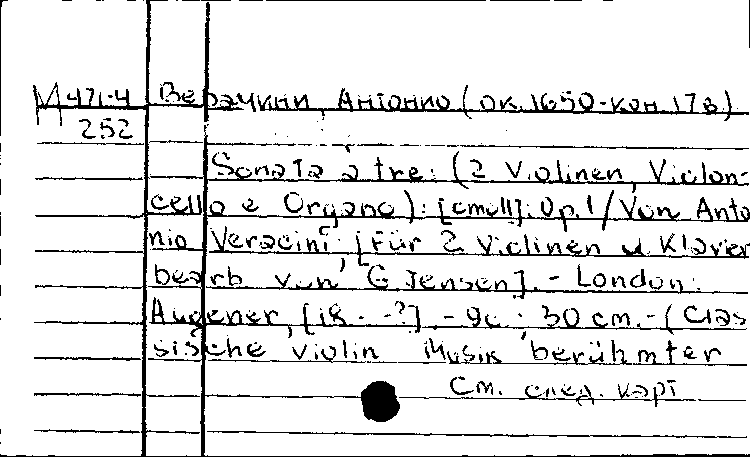 М 471-4 Верачини, Антонио (ок. 1650-кон. 17 в.)
252
Sonata a tre: (2 Violinen, Violon-
cello e Organo): [cmoll]: Op. 1 / Von Anto
nio Veracini; [Für 2 Violinen u. Klavier
bearb. von G. Jensen]. - London:
Augener, [18 - -?]. - 9c.; 30 cm. - (Clas
sische Violin Musik berühmter
См. след. карт